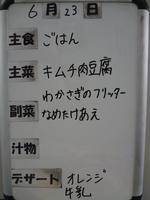 6月23日
主食 ごはん
主菜 キムチ肉豆腐
わかさぎのフリッター
副菜 なめたけあえ
汁物
デザート オレンジ
牛乳